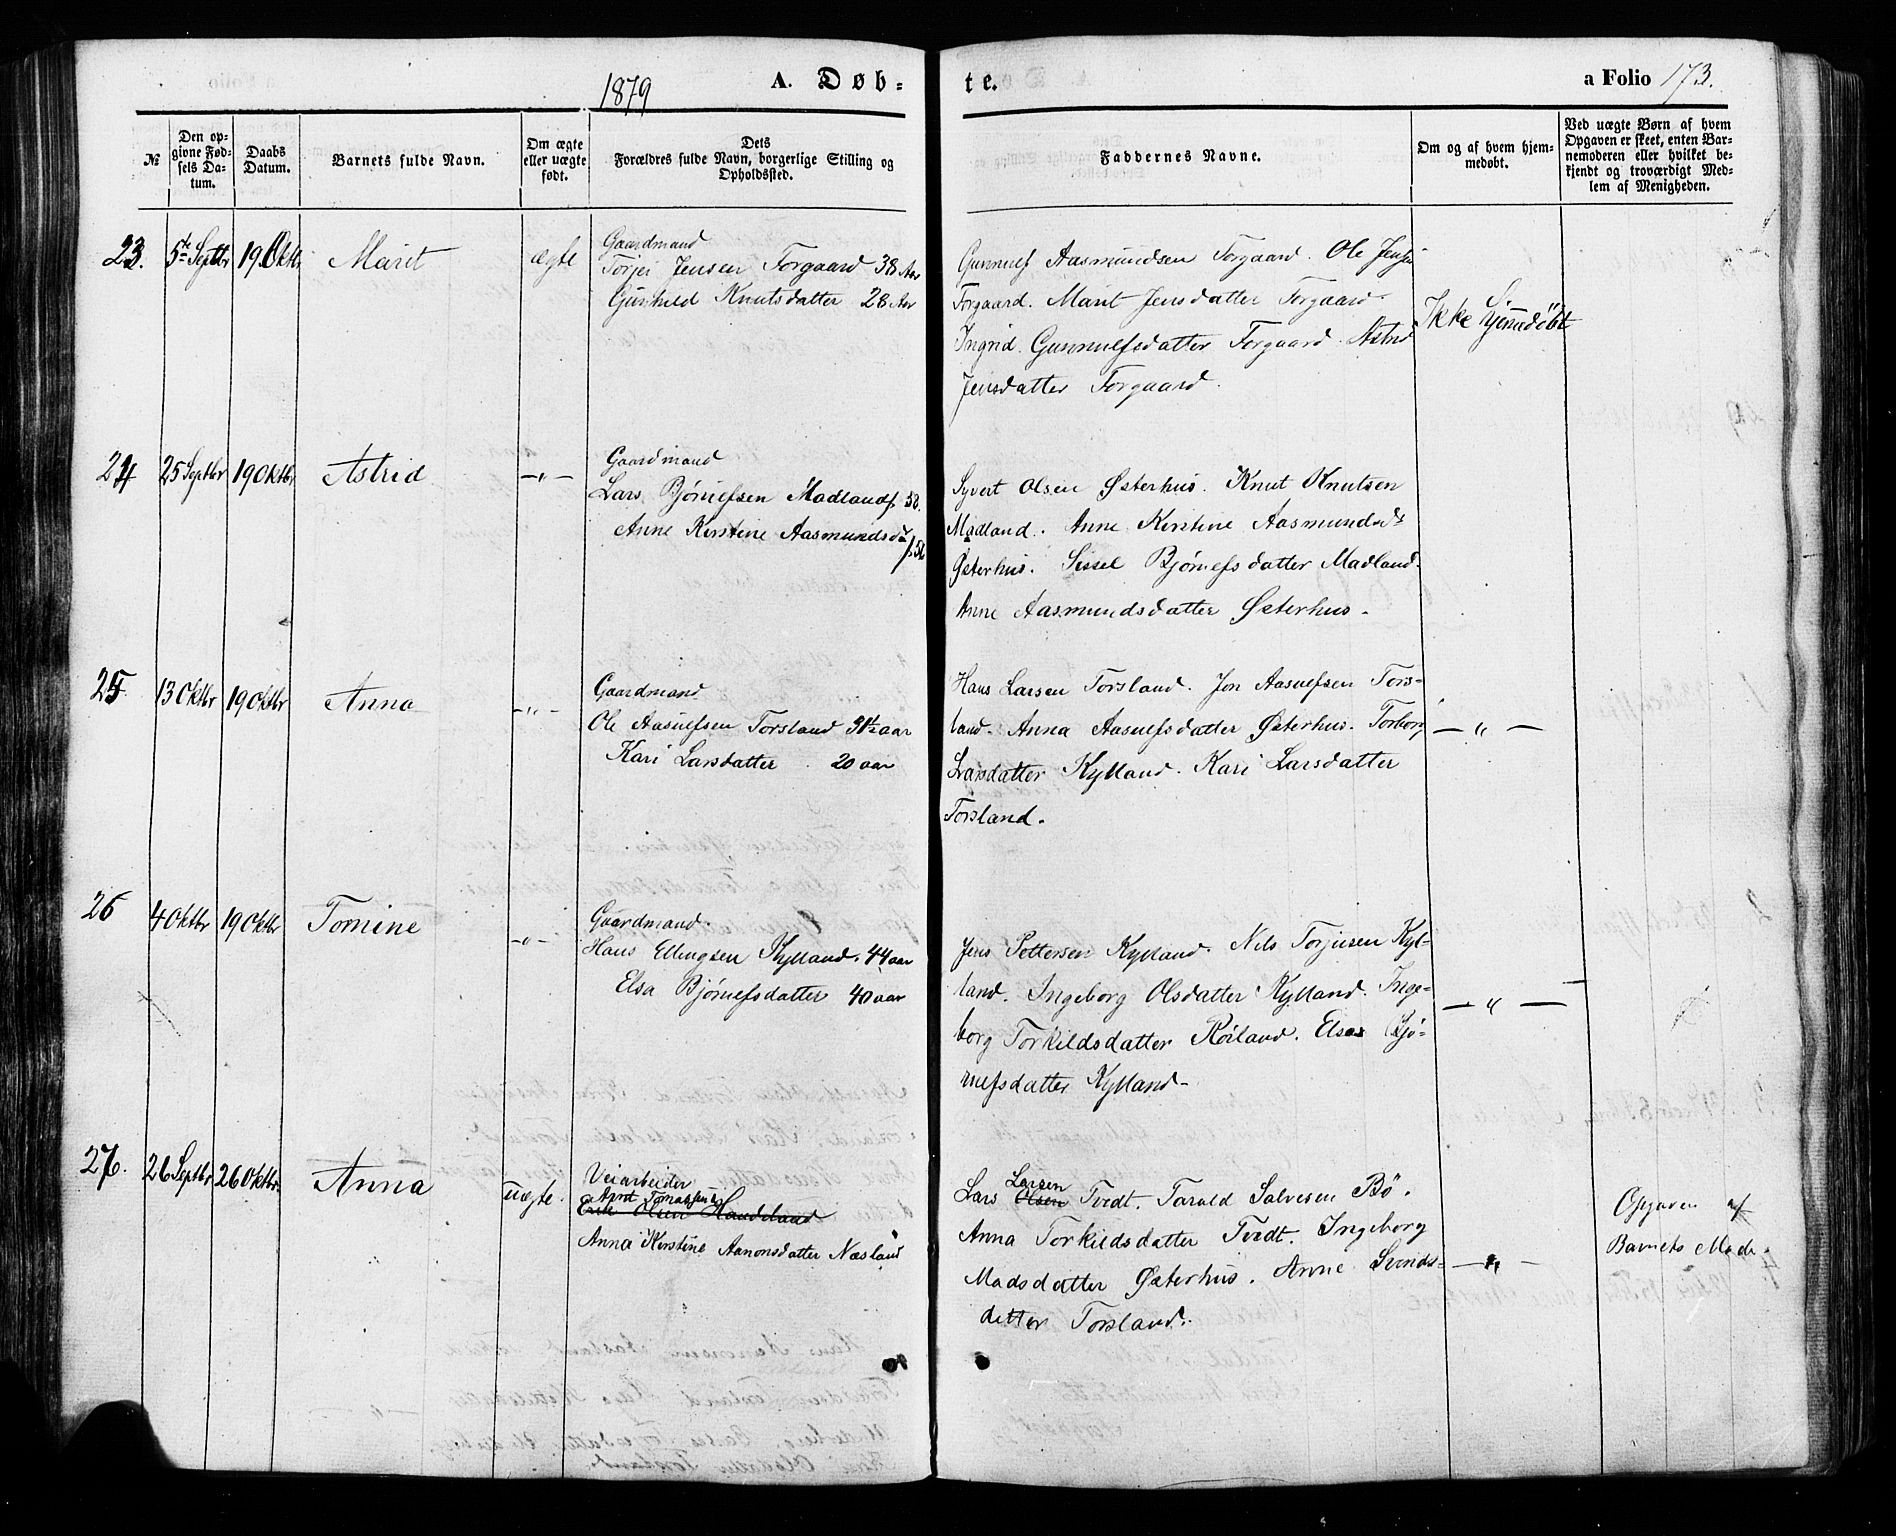 1879
A. Døb-
te.
a Folio 173.
№
Den op-
givne Fød-
sels Da-
tum.
Daabs
Datum.
Barnets fulde Navn.
Om ægte
eller uægte
født.
Dets
Forældres fulde Navn, borgerlige Stilling og
Opholdssted.
Faddernes Navne.
Om og af hvem hjem-
medøbt.
Ved uægte Børn af hvem
Opgaven er skeet, enten Bar-
nemoderen eller hvilket be-
kjendt og troværdigt Med-
lem af Menigheden.
23. 5te Septbr 19 Oktbr Marit ægte
Gaardmand
Torjei Jensen Torgaard 38 Aar
Gunhild Knutsdatter 28 Aar
Gunnulf Aasmundsen Torgaard. Ole Jensen
Torgaard. Marit Jensdatter Torgaard.
Ingrid Gunnulfsdatter Torgaard. Astrid
Jensdatter Torgaard.
Ikke hjemmedöbt
24 25 Septbr 19 Oktbr Astrid —"—
Gaardmand
Lars Bjørnefsen Madland
Anne Kirstine Aasmundsdr
Syvert Olsen Østerhus. Knut Knutsen
Madland. Anne Kirstine Aasmundsdr
Østerhus. Sissel Bjørnefsdatter Madland.
Anne Aasmundsdatter Østerhus.
25 13 Oktbr 19 Oktbr Anna —"—
Gaardmand
Ole Aasulfsen Torsland aar
Kari Larsdatter 20 aar
Hans Larsen Torsland. Jon Aasulfsen Tors-
land. Anna Aasulfsdatter Østerhus. Torborg
Larsdatter Kylland. Kari Larsdatter
Torsland.
—"—
26 4 Oktbr 19 Oktbr Tomine —"—
Gaardmand.
Hans Ellingsen Kylland. 44 aar
Elsa Bjørnefsdatter 40 aar
Jens Pettersen Kylland. Nils Torjusen Kyl-
land. Ingeborg Olsdatter Kylland. Inge-
borg Torkildsdatter Röiland. Elsa Bjö-
rnefsdatter Kylland.
—"—
27. 26 Septbr 26 Oktbr. Anna uægte.
Veiarbeider
Arnt Tomassen
Erik Olsen Handeland
Anna Kirstine Aanonsdatter Næsland
Lars Olsen Larsen Tvedt. Tarald Salvesen Bö.
Anna Torkildsdatter Tvedt. Ingeborg
Madsdatter Østerhus. Anne Svends-
datter Torsland.
—"—
Opgaven af
Barnets Moder.